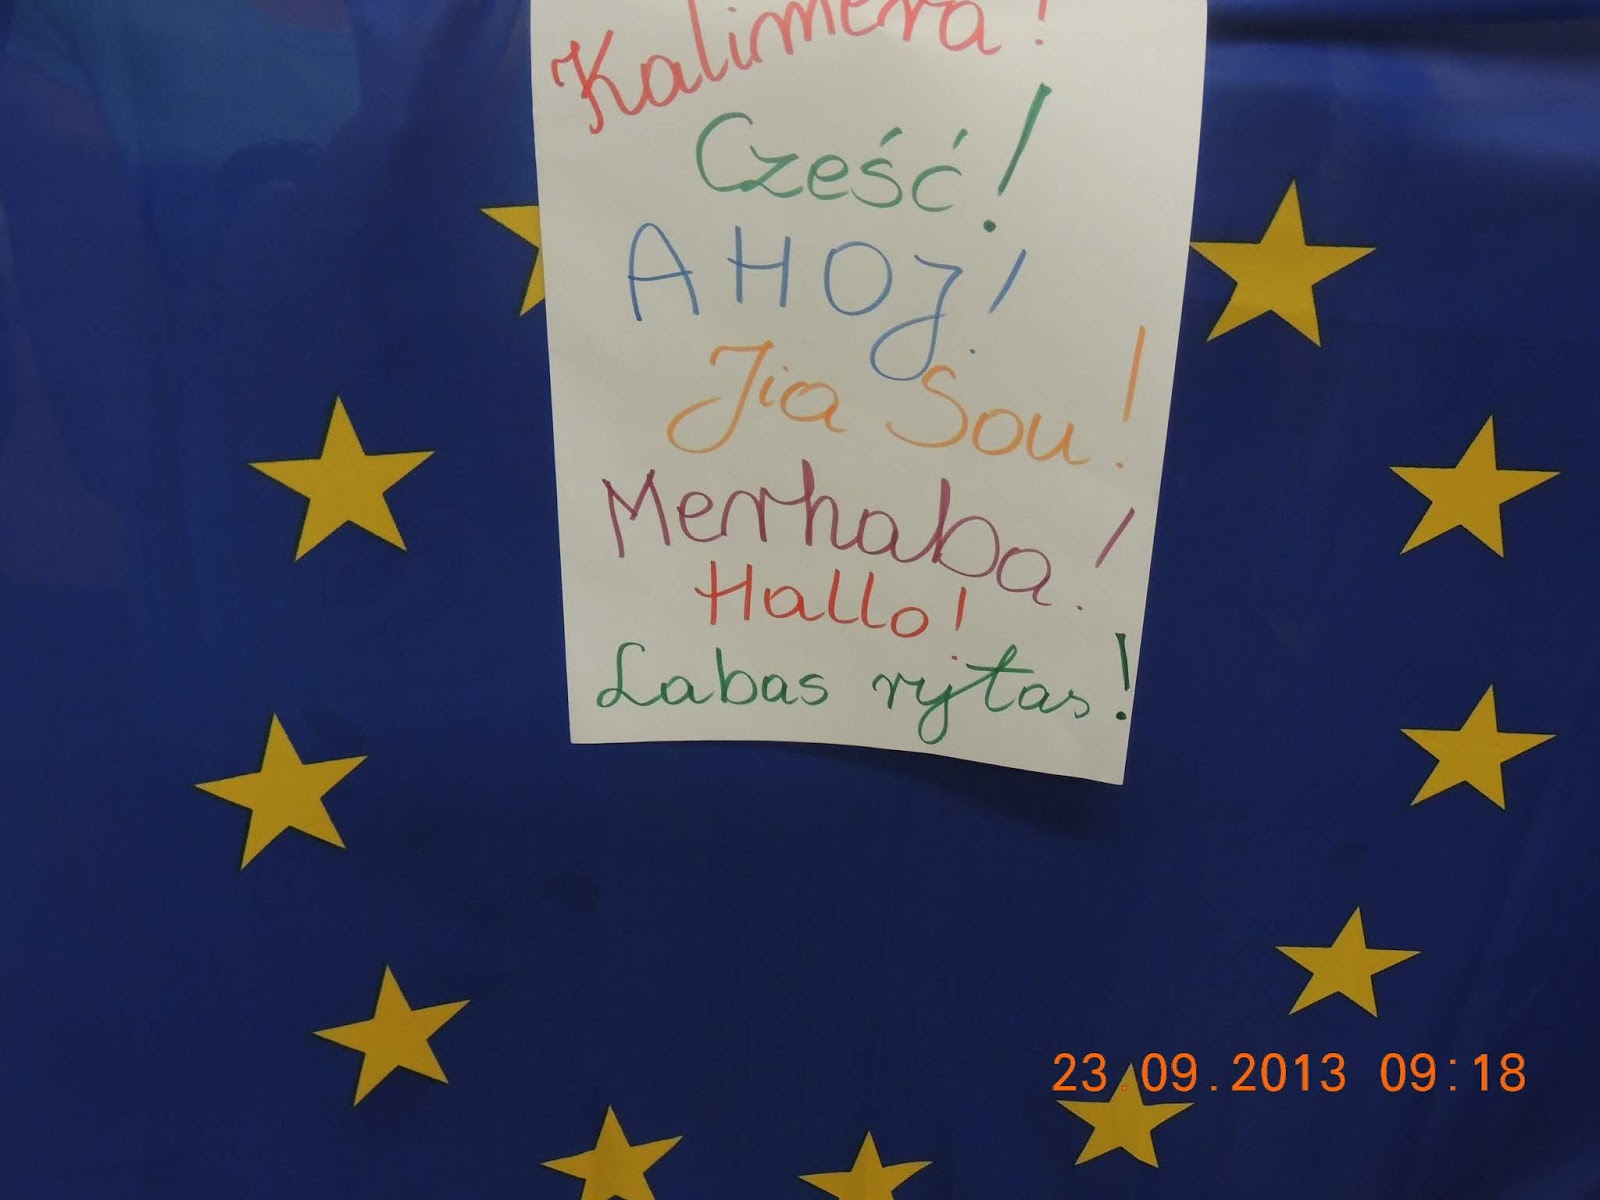 Kalimera!
Cześć!
AHOJ!
Jia Sou!
Merhaba!
Hallo!
Labas rytas!
23.09.2013 09:18